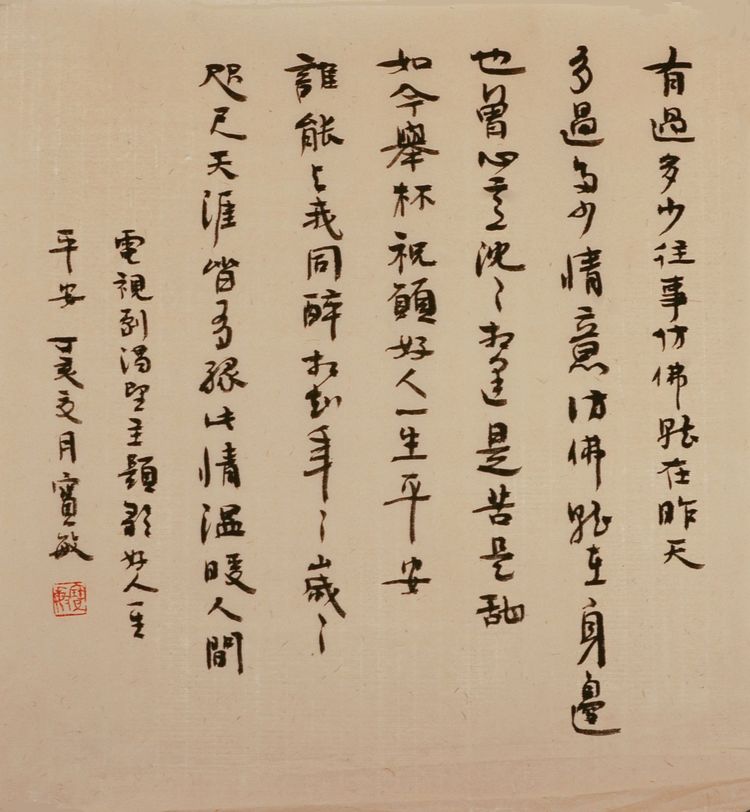 有過多少往事仿佛就在昨天
有過多少情意仿佛就在身邊
也曾心意沈〻相逢是苦是甜
如今舉杯祝願好人一生平安
誰能与我同醉相知年〻歲〻
咫尺天涯皆有緣此情溫暖人間
電視劇渴望主題歌好人一生
平安 丁亥月寶敏